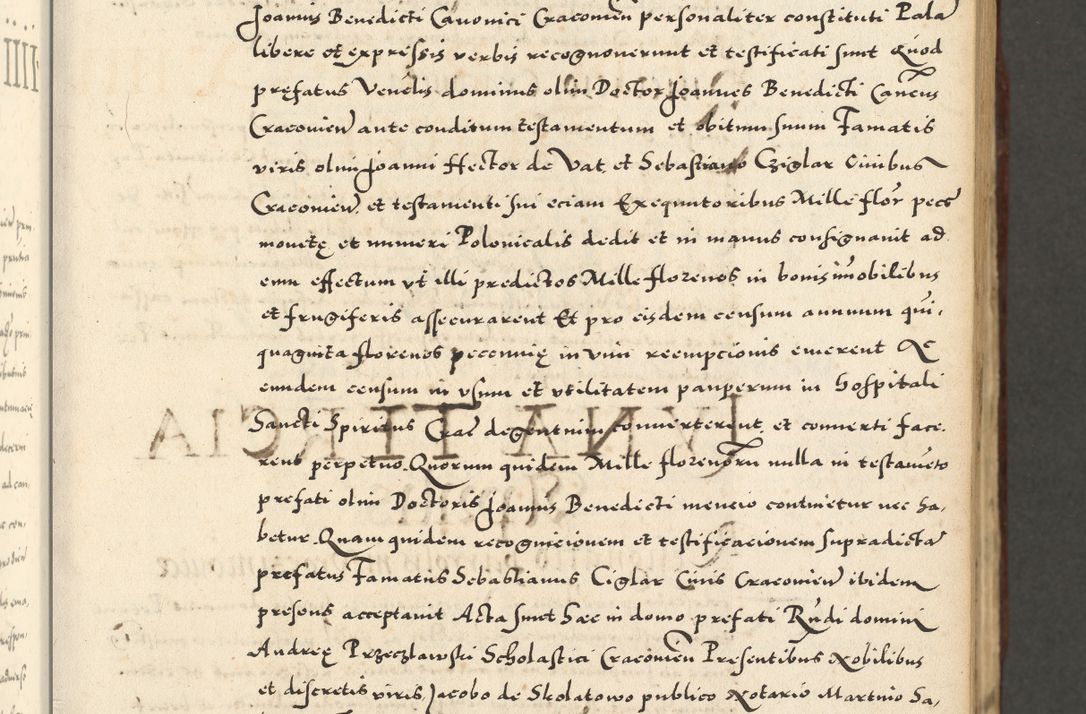 Joannis Benedicti Canonici Cracovien personaliter constituti Pala
libere et expressis verbis recognoverunt et testificati sunt Quod
prefatus Venelis dominus olim Doctor Joannes Benedicti Cancus
Cracovien ante conditum testamentum et obitum suum Famatis
viris olim Joanni Hector de Vat et Sebastiano Cziglar Civibus
Cracovien et testamenti sui eciam Exequutoribus Mille flor pecc
monetę et numeri Polonicalis dedit et in manus consignavit ad
eum effectum ut illi predictos Mille florenos in bonis immobilibus
et frugiferis assecurarent Et pro eisdem censum annuum qui,
quaginta florenos pecunię in vim reempcionis emerent Ac
eundem censum in usum et utilitatem pauperum in hospitali
Sancti Spiritus Crac degentium converterent et converti face,
rent perpetuo Quorum quidem Mille florenorum nulla in testameto
prefati olim Doctoris Joannis Benedicti mencio continetur nec ha,
betur Quam quidem recognicionem et testificacionem supradicta
prefatus Famatus Sebastianus Ciglar Civis Cracovien ibidem
presens acceptavit Acta sunt hęc in domo prefati Rndi domini
Andreę Przeczlawski Scholastici Cracovien Presentibus Nobilibus
et discretis viris Jacobo de Skolatowo publico Notario Martino Sa,